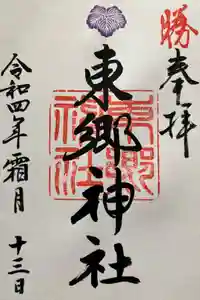 勝
奉拝
東郷神社
東郷神社
令和四年霜月
十三日